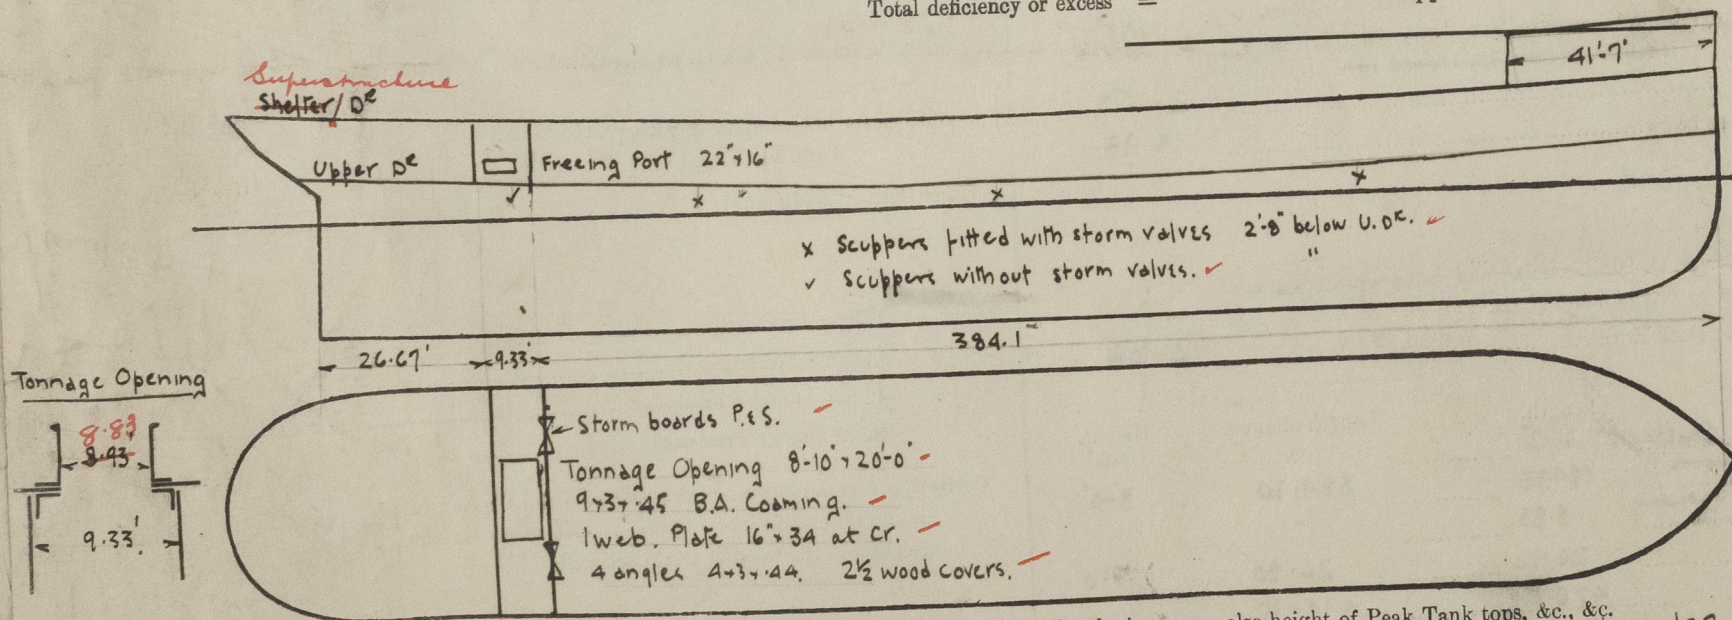 Total deficiency or excess =
41'-7"
Superstructure
Shelter/ Dᴷ
Upper Dᴷ
Freeing Port 22"×16"
✓ × × ×
× Scuppers fitted with storm valves 2'-8" below U.Dᴷ.
✓ Scuppers without storm valves. "
26.67' 9.33' 384.1
Tonnage Opening
8.83
8.93
9.33'
Storm boards P.&S.
Tonnage Opening 8'-10"×20'-0"
9×3×.45 B.A. Coaming.
1 web. Plate 16"×34 at Cr.
4 angles 4×3×.44. 2½ wood covers.
height of Peak Tank tops, &c., &c.